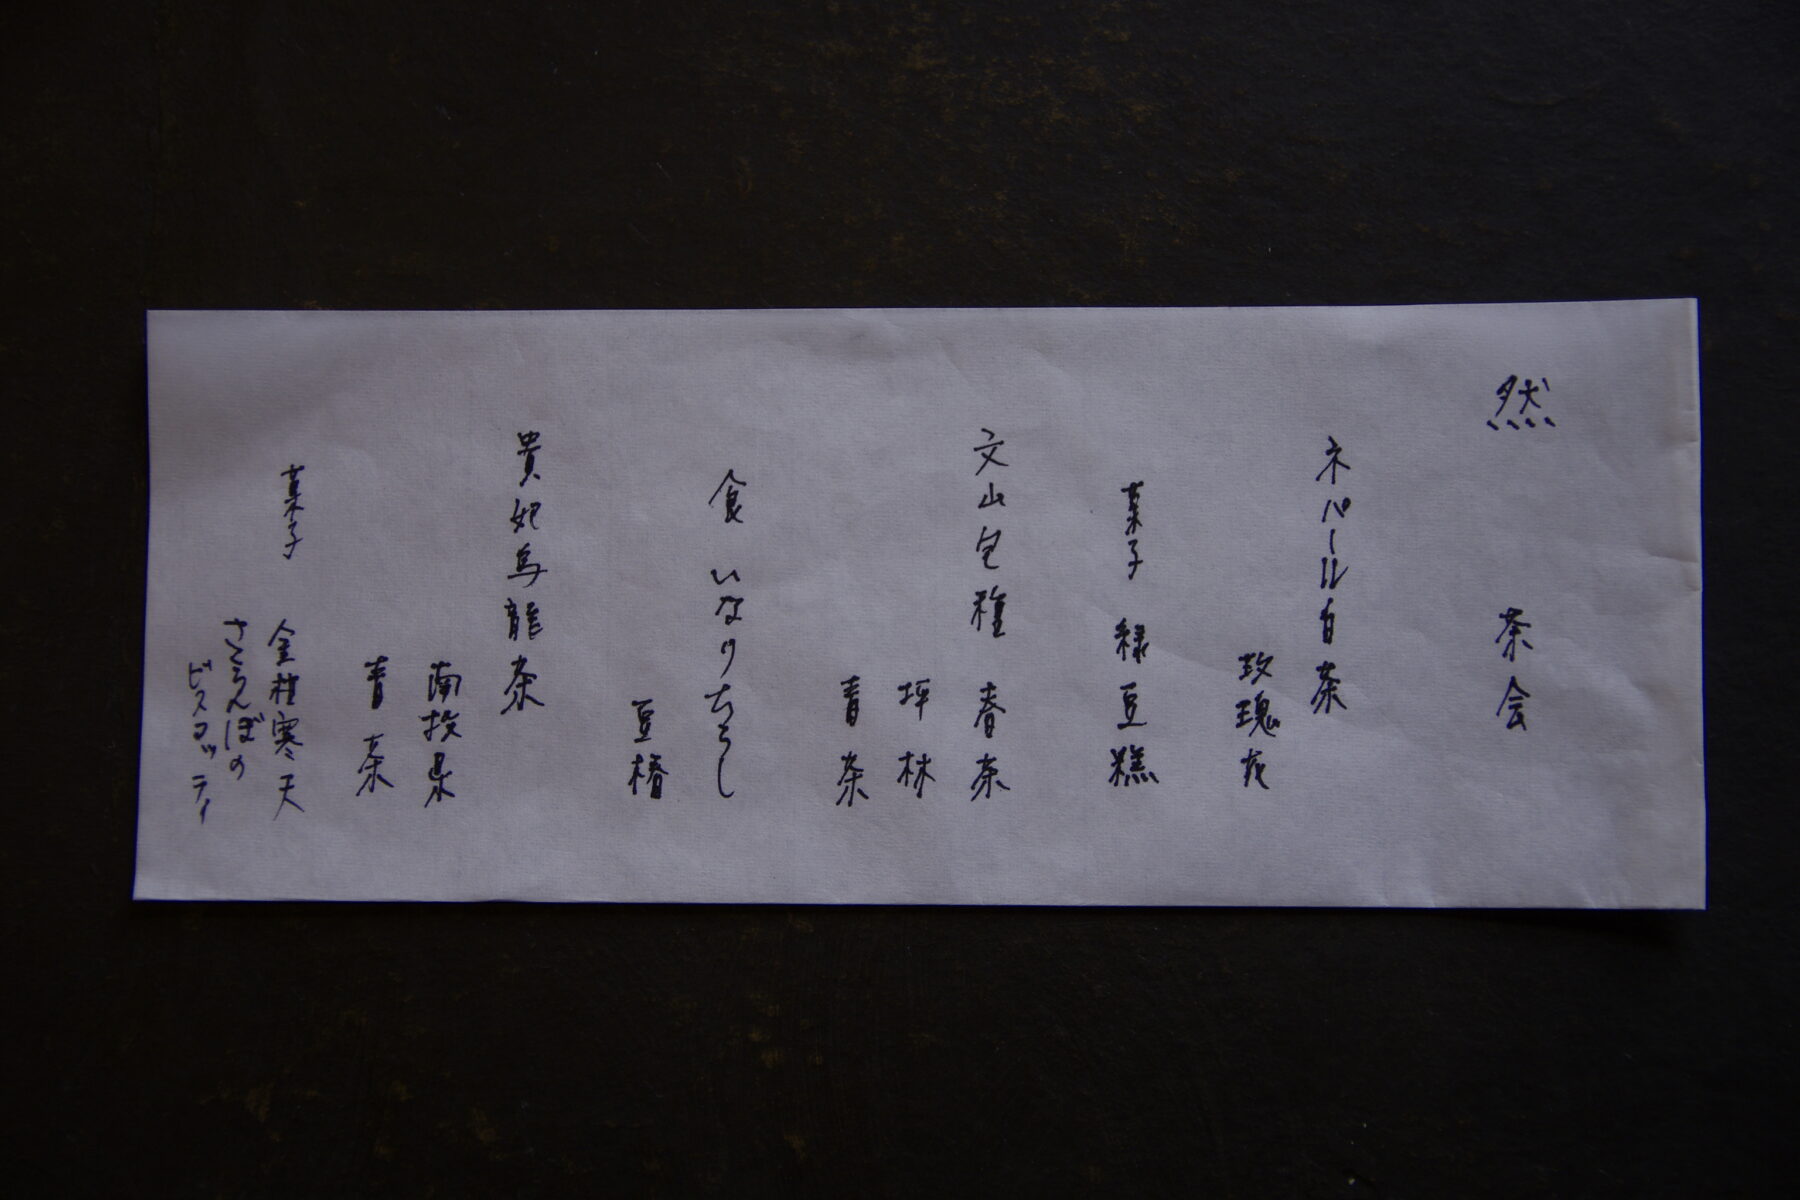 然 茶会
ネパール白茶
玫瑰花
菓子 緑豆糕
文山包種 春茶
坪林
青茶
食 いなりちらし
豆椿
貴妃烏龍茶
南投県
青茶
菓子 金柑寒天
さくらんぼの
ビスコッティ